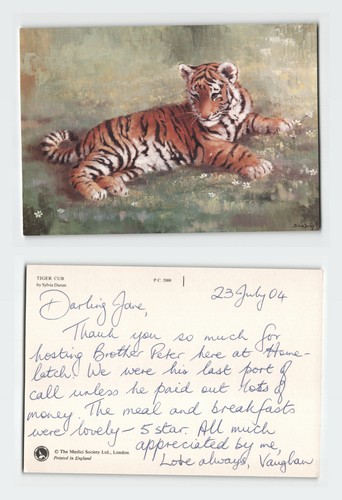 TIGER CUB
by Sylvia Duran
P.C. 2088
23 July 04
Darling Jane,
Thank you so much for
hosting Brother Peter here at Home-
latch. We were his last port of
call unless he paid out lots of
money. The meal and breakfasts
were lovely – 5 star. All much
appreciated by me,
Love always, Vaughan
© The Medici Society Ltd., London
Printed in England